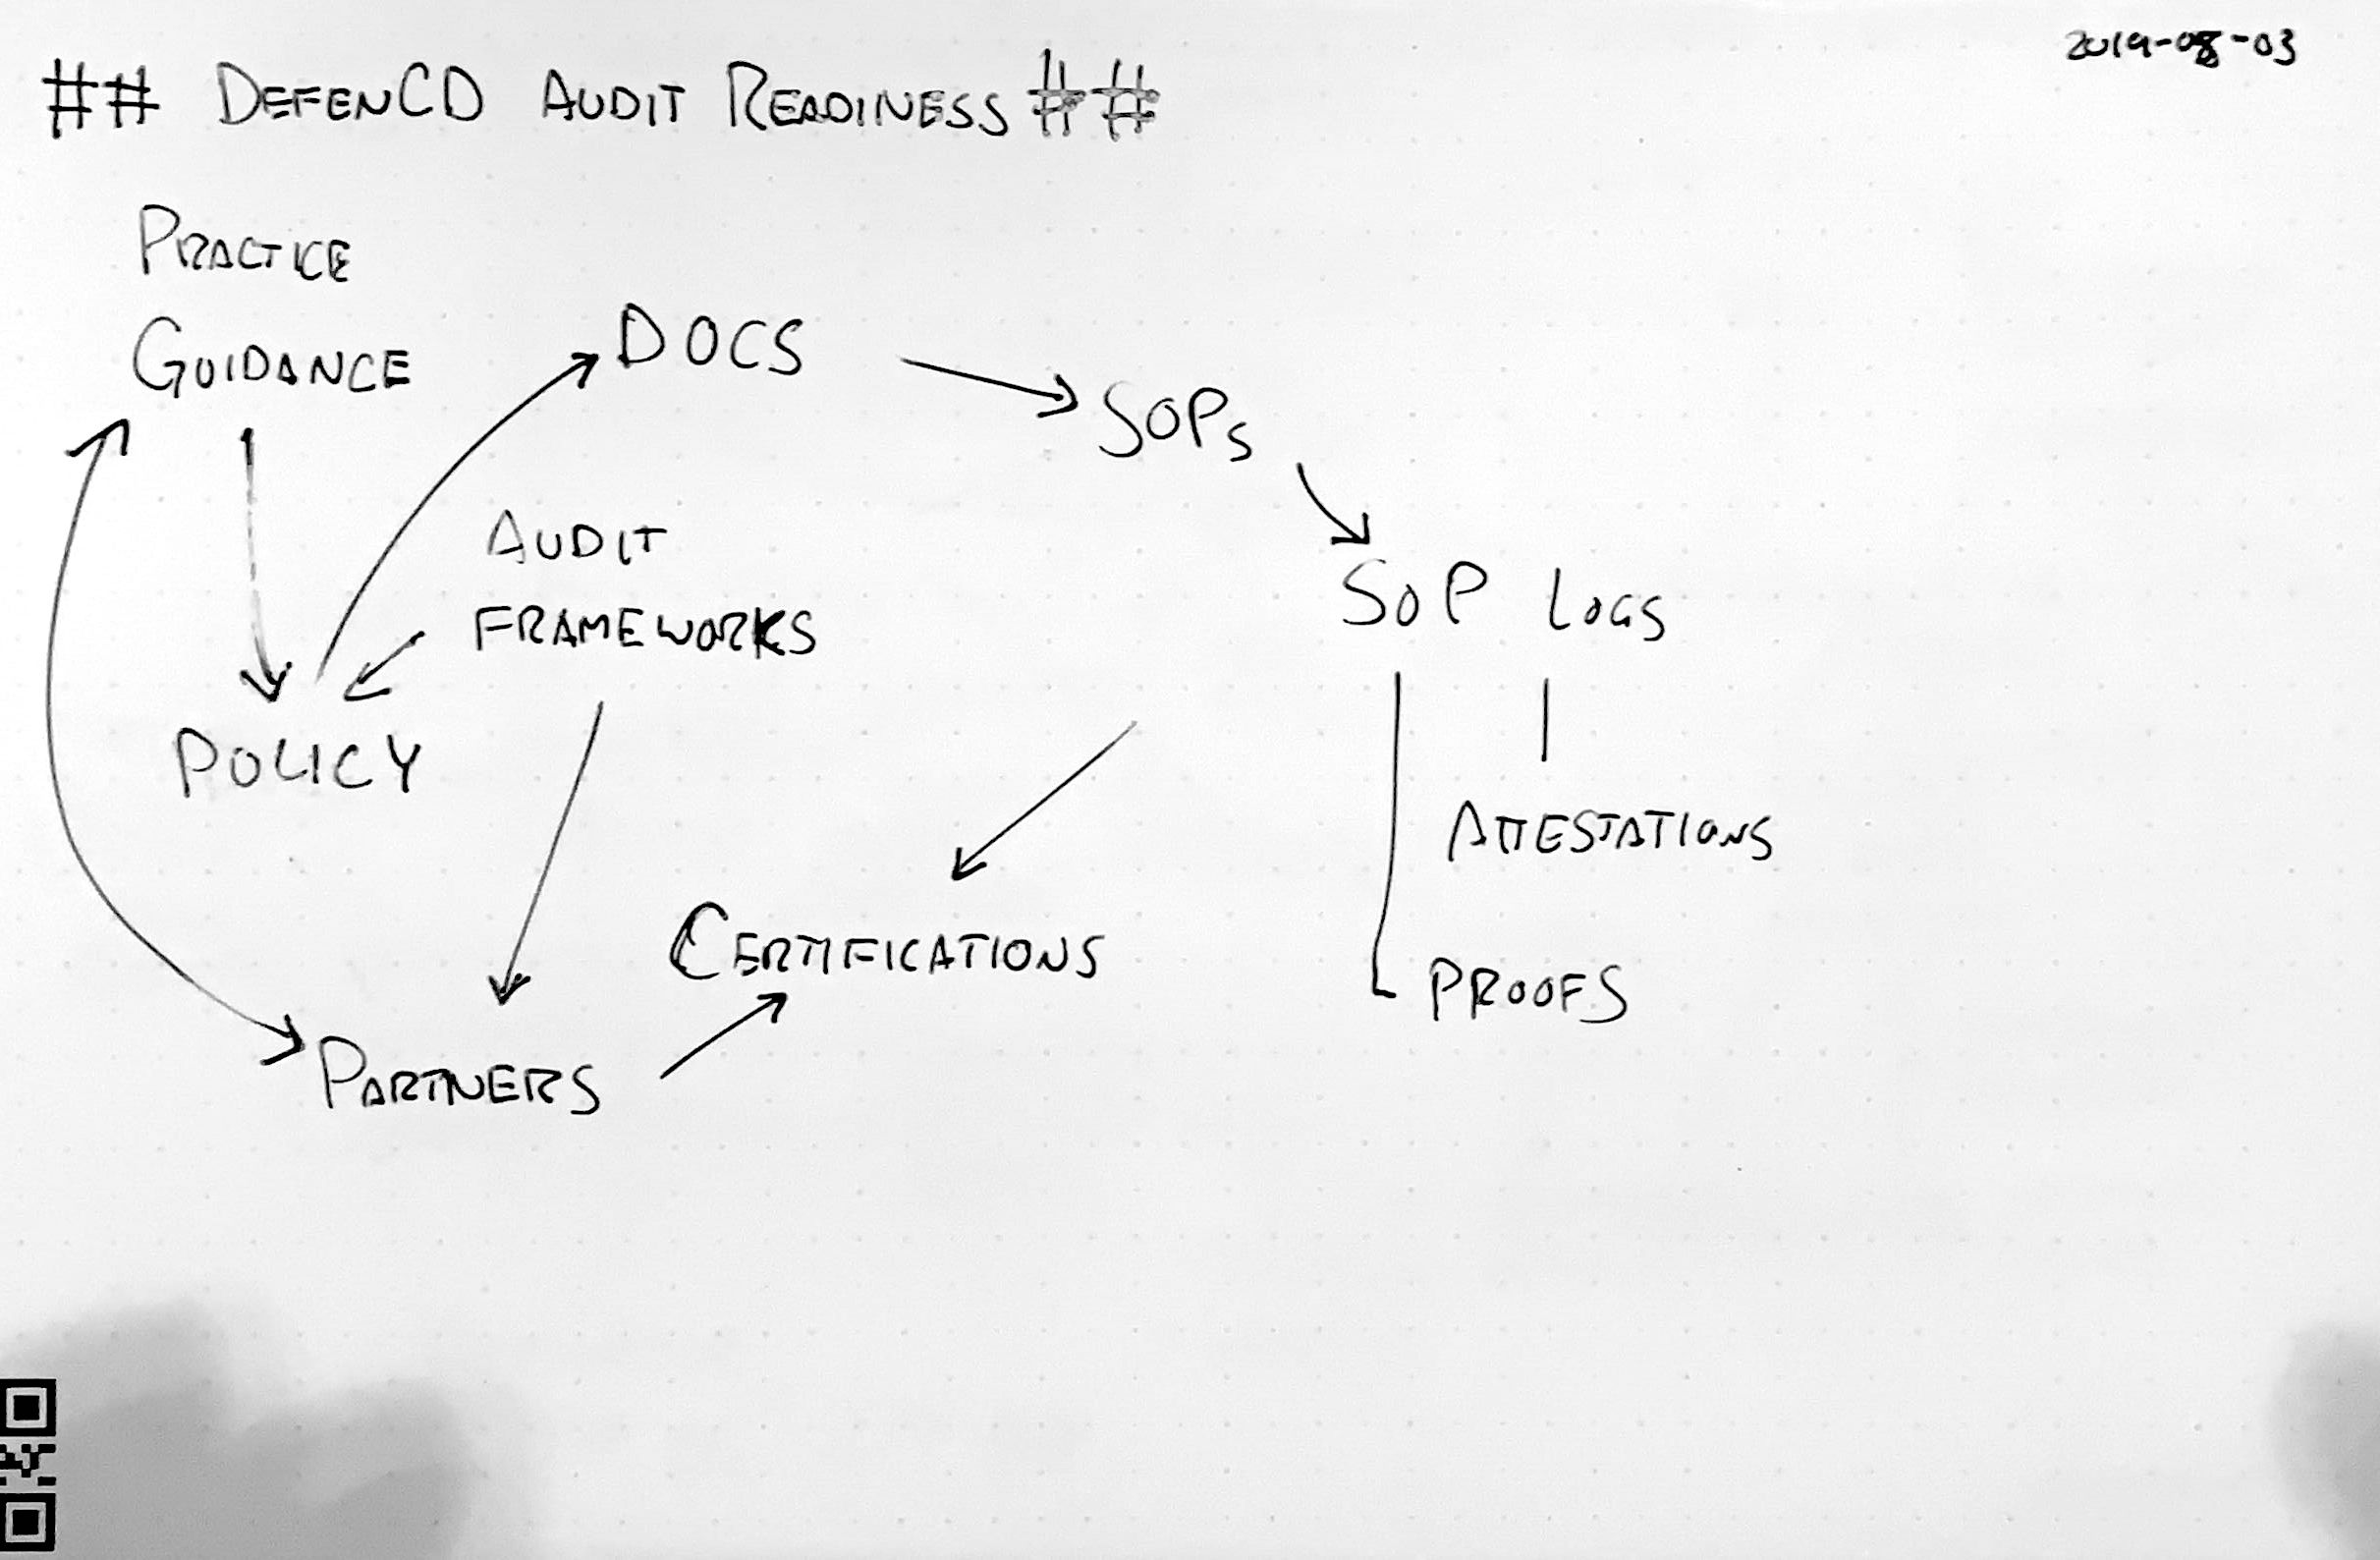 2019-08-03
## DEFENCD AUDIT READINESS ##
PRACTICE
GUIDANCE
DOCS
SOPs
AUDIT
FRAMEWORKS
SOP LOGS
POLICY
ATTESTATIONS
CERTIFICATIONS
PROOFS
PARTNERS